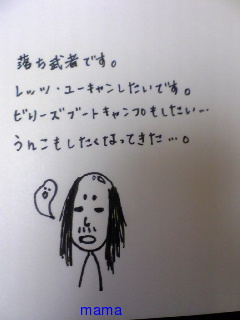 落ち武者です。
レッツ・ユーキャンしたいです。
ビリーズブートキャンプもしたい…
うんこもしたくなってきた…。
mama